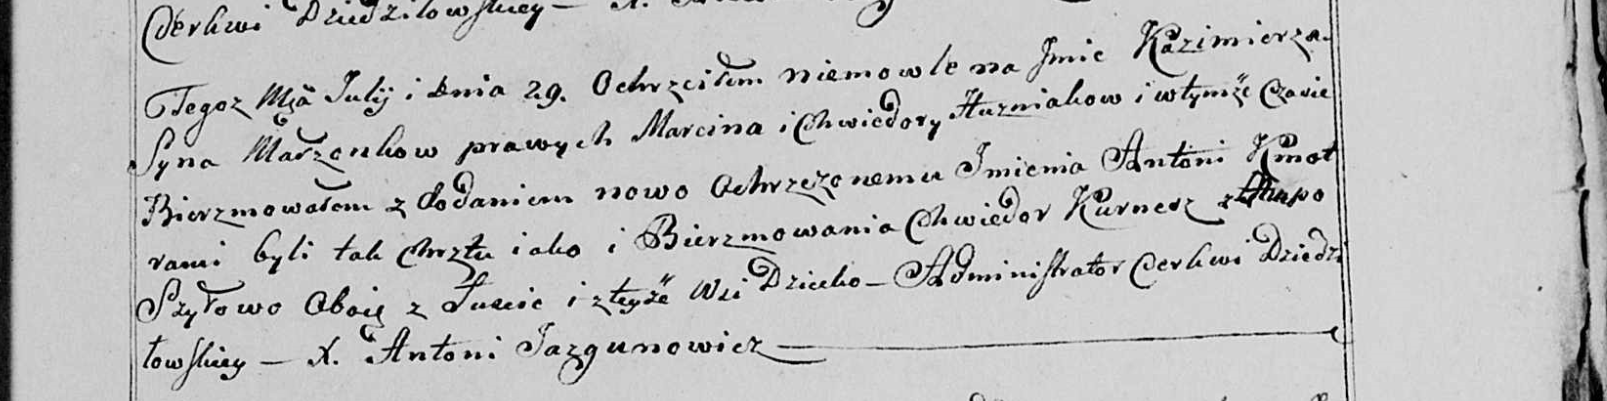 Cerkwi Dziedziłowskiey — X.
Tegoz Mca July i dnia 29. Ochrzciłem niemowle na Jmie Kazimierza
Syna Małrzonkow prawych Marcina i Chwiedory Huzniakow i wtymże Czasie
Bierzmowałem z dodaniem nowo Ochrzczonemu Jmienia Antoni Kmot
rami byli tak Chrztu iako i Bierzmowania Chwiedor Kurnesz z
Szyłowo Oboie z i zteyże Wsi Dziecko — Administrator Cerkwi Dziedzi
łowskiey — X. Antoni Jazgunowicz —